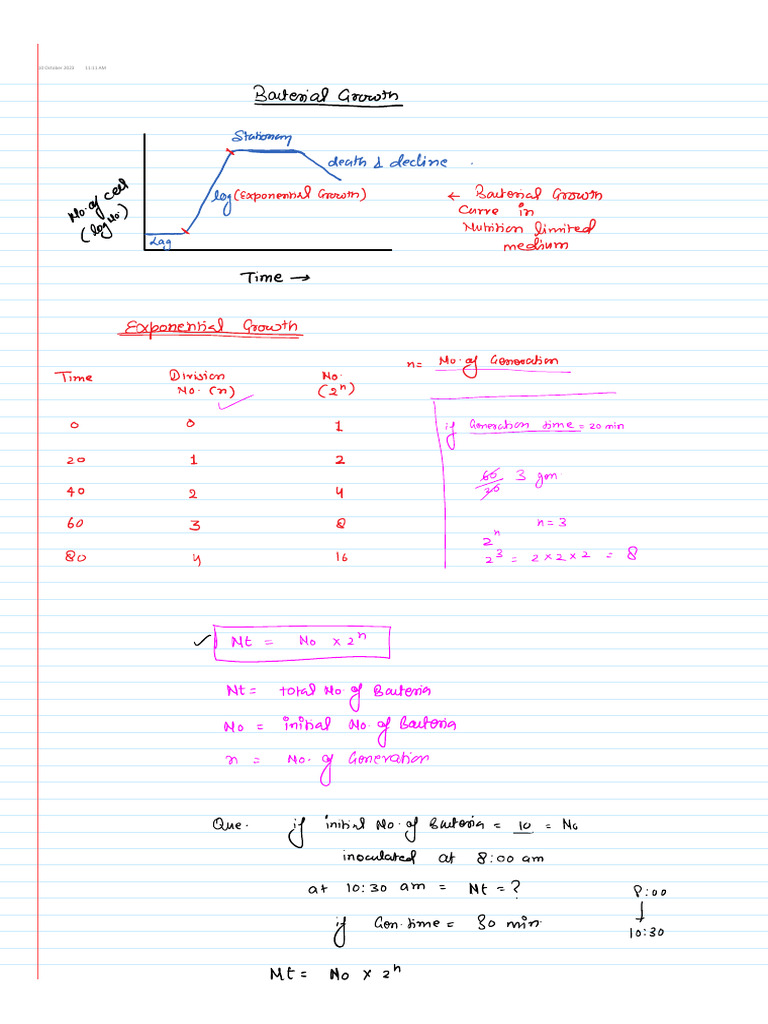 10 October 2023 11:11 AM
Bacterial Growth
Stationary
death & decline
No. of cell
(log No.)
log (Exponential Growth)
Lag
← Bacterial Growth
Curve in
Nutrition limited
medium
Time →
Exponential Growth
n = No. of Generation
Time Division No. (n) No. (2^n)
0 0 1
20 1 2
40 2 4
60 3 8
80 4 16
if Generation time = 20 min
60/20 3 gen.
n = 3
2^n
2^3 = 2 × 2 × 2 = 8
✓ Nt = No × 2^n
Nt = total No. of Bacteria
No = initial No. of Bacteria
n = No. of Generation
Que. if initial No. of Bacteria = 10 = No
inoculated at 8:00 am
at 10:30 am = Nt = ?
if Gen. time = 30 min.
8:00
↓
10:30
Nt = No × 2^n